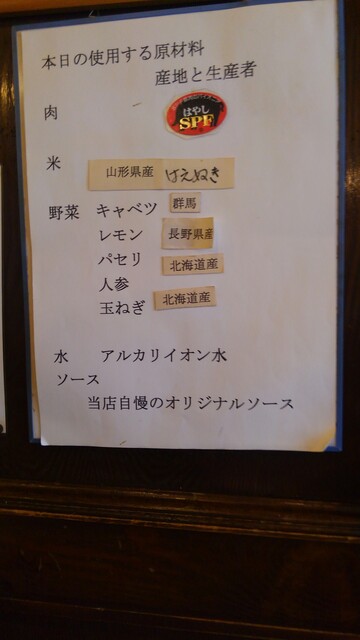 本日の使用する原材料
産地と生産者
肉 はやし SPF
米 山形県産 はえぬき
野菜 キャベツ 群馬
レモン 長野県産
パセリ 北海道産
人参
玉ねぎ 北海道産
水 アルカリイオン水
ソース
当店自慢のオリジナルソース